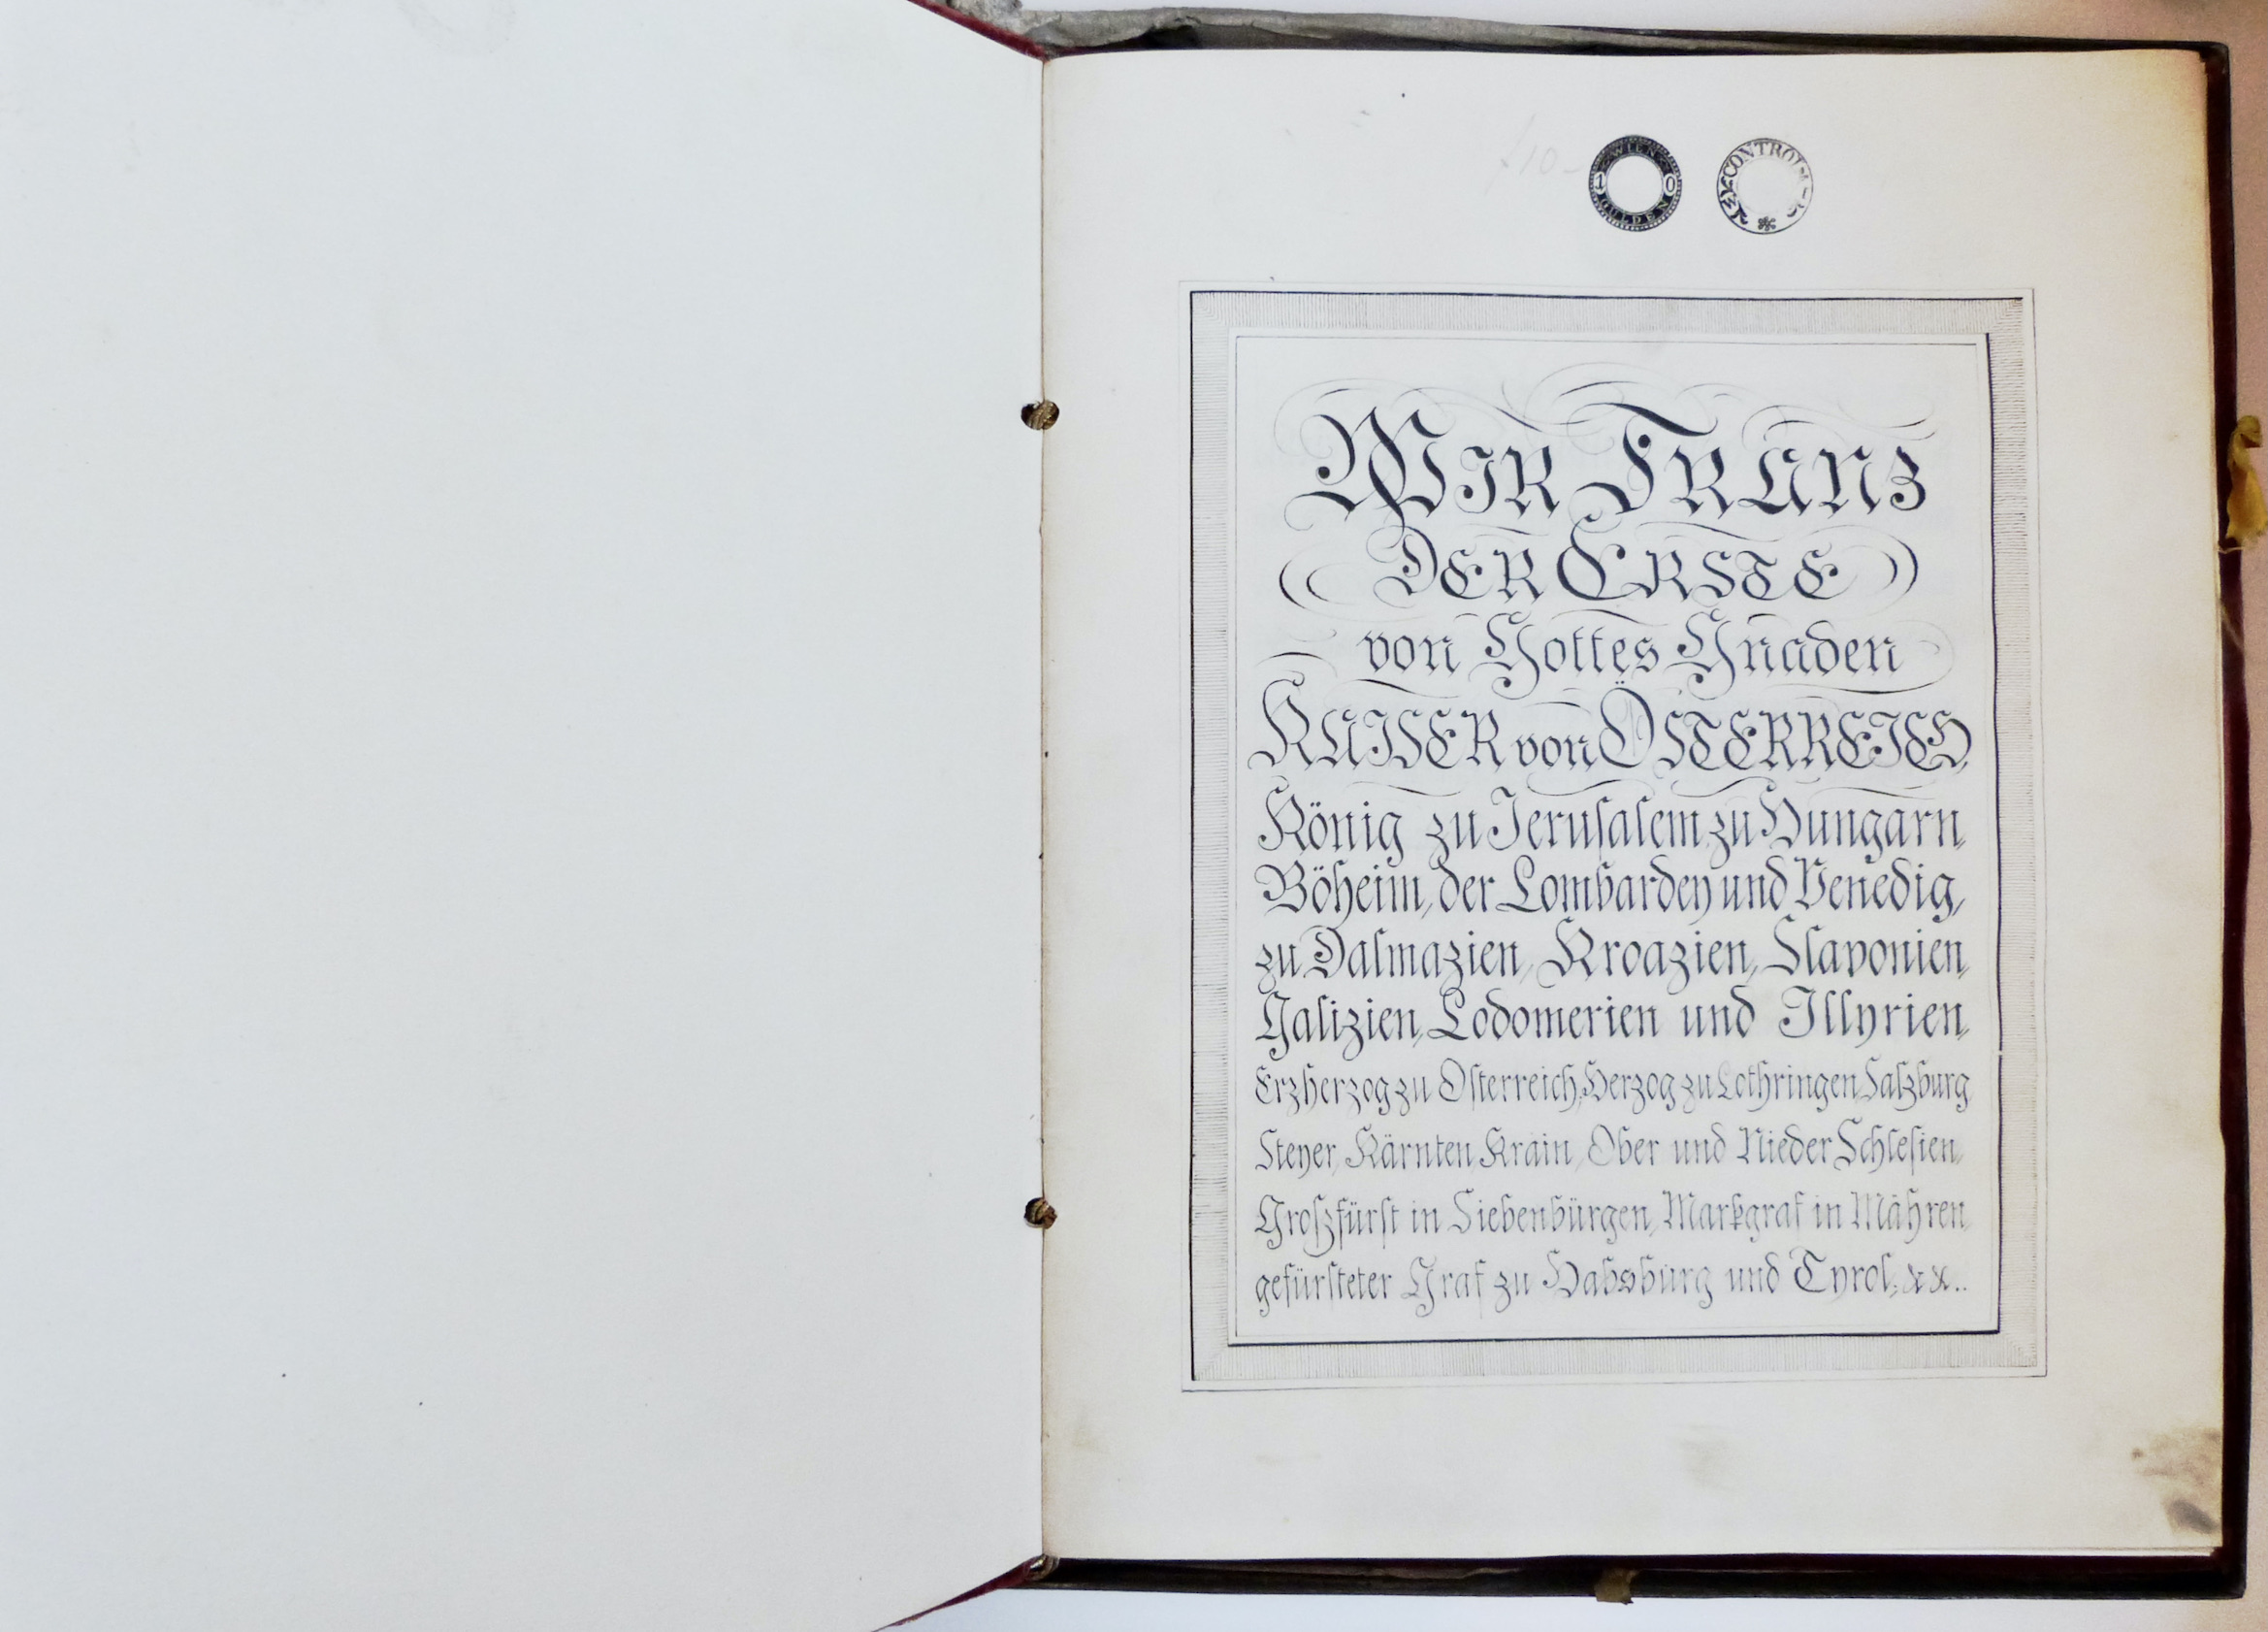 f10-
WIEN
10
GULDEN
CONTROL
WIR FRANZ
DER ERSTE
von Gottes Gnaden
KAISER von ÖSTERREICH,
König zu Jerusalem, zu Hungarn,
Böheim, der Lombardey und Venedig,
zu Dalmazien, Kroazien, Slavonien,
Galizien, Lodomerien und Illyrien,
Erzherzog zu Österreich, Herzog zu Lothringen, Salzburg
Steyer, Kärnten, Krain, Ober und Nieder Schlesien,
Großfürst in Siebenbürgen, Markgraf in Mähren,
gefürsteter Graf zu Habsburg und Tyrol, &&..